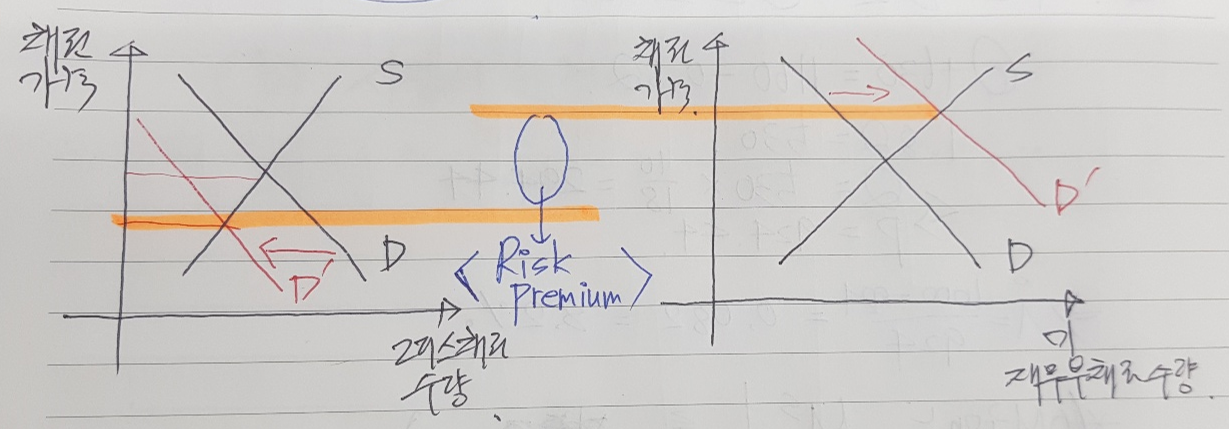 채권
가격
S
D
D'
그리스채권
수량
< Risk
premium >
채권
가격.
S
D'
D
미
재무부채권수량.